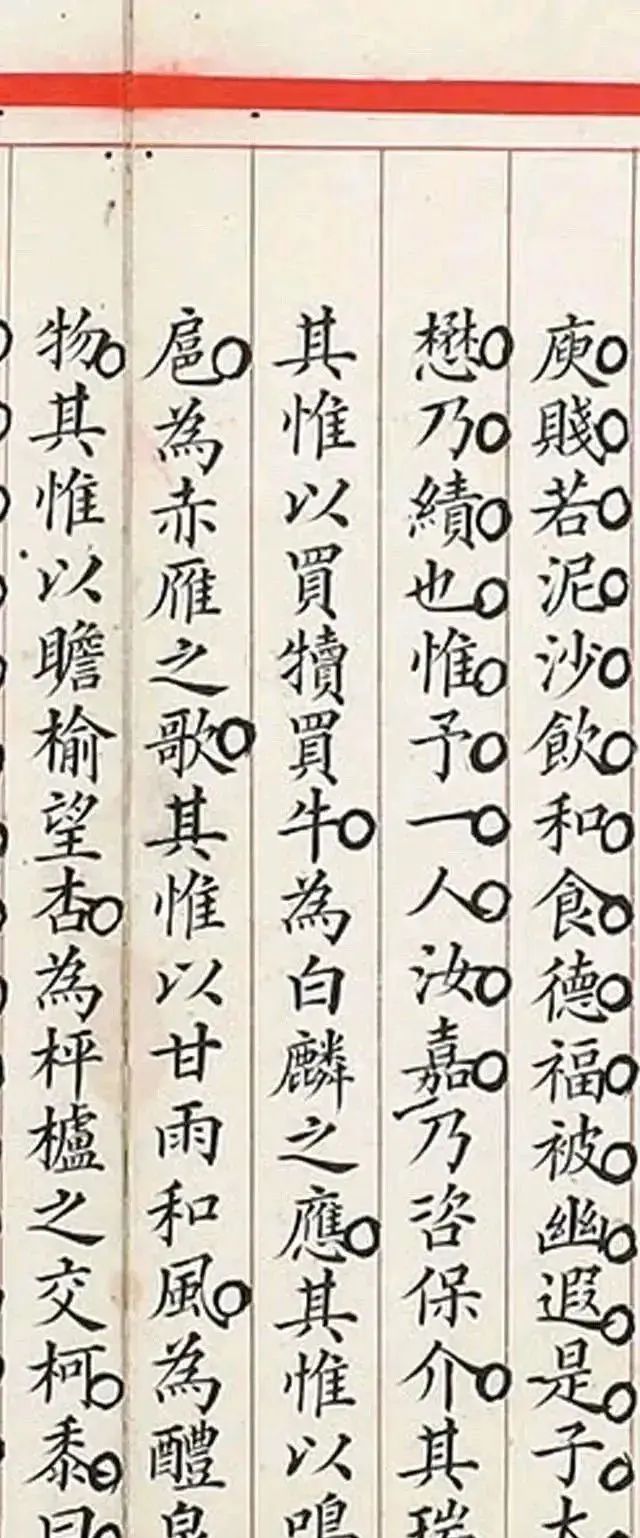 庾賤若泥沙飲和食德福被幽遐是子大
懋乃績也惟予一人汝嘉乃咨保介其瑞
其惟以買犢買牛為白麟之應其惟以鳴
扈為赤雁之歌其惟以甘雨和風為醴泉
物其惟以瞻榆望杏為枰櫨之交柯黍曰